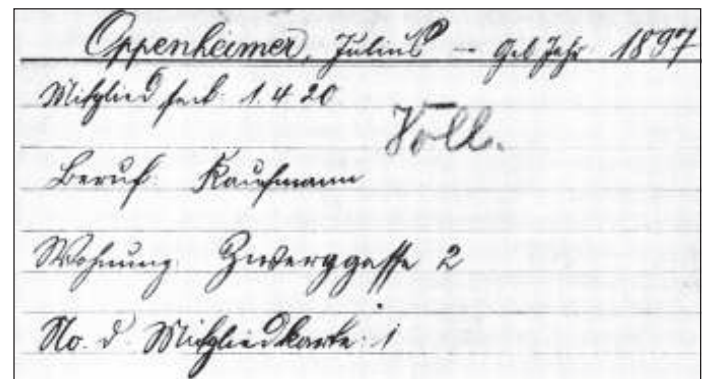 Oppenheimer, Julius – Geb. Jahr 1897
Mitglied seit: 1.4.20
Voll.
Beruf: Kaufmann
Wohnung: Zwerggasse 2
No. d. Mitgliedkarte: 1